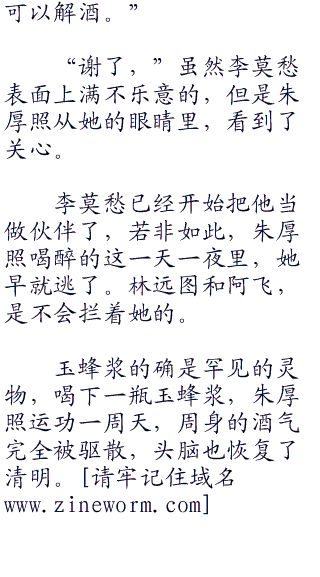 可以解酒。”
“谢了，”虽然李莫愁
表面上满不乐意的，但是朱
厚照从她的眼睛里，看到了
关心。
李莫愁已经开始把他当
做伙伴了，若非如此，朱厚
照喝醉的这一天一夜里，她
早就逃了。林远图和阿飞，
是不会拦着她的。
玉蜂浆的确是罕见的灵
物，喝下一瓶玉蜂浆，朱厚
照运功一周天，周身的酒气
完全被驱散，头脑也恢复了
清明。[请牢记住域名
www.zineworm.com]